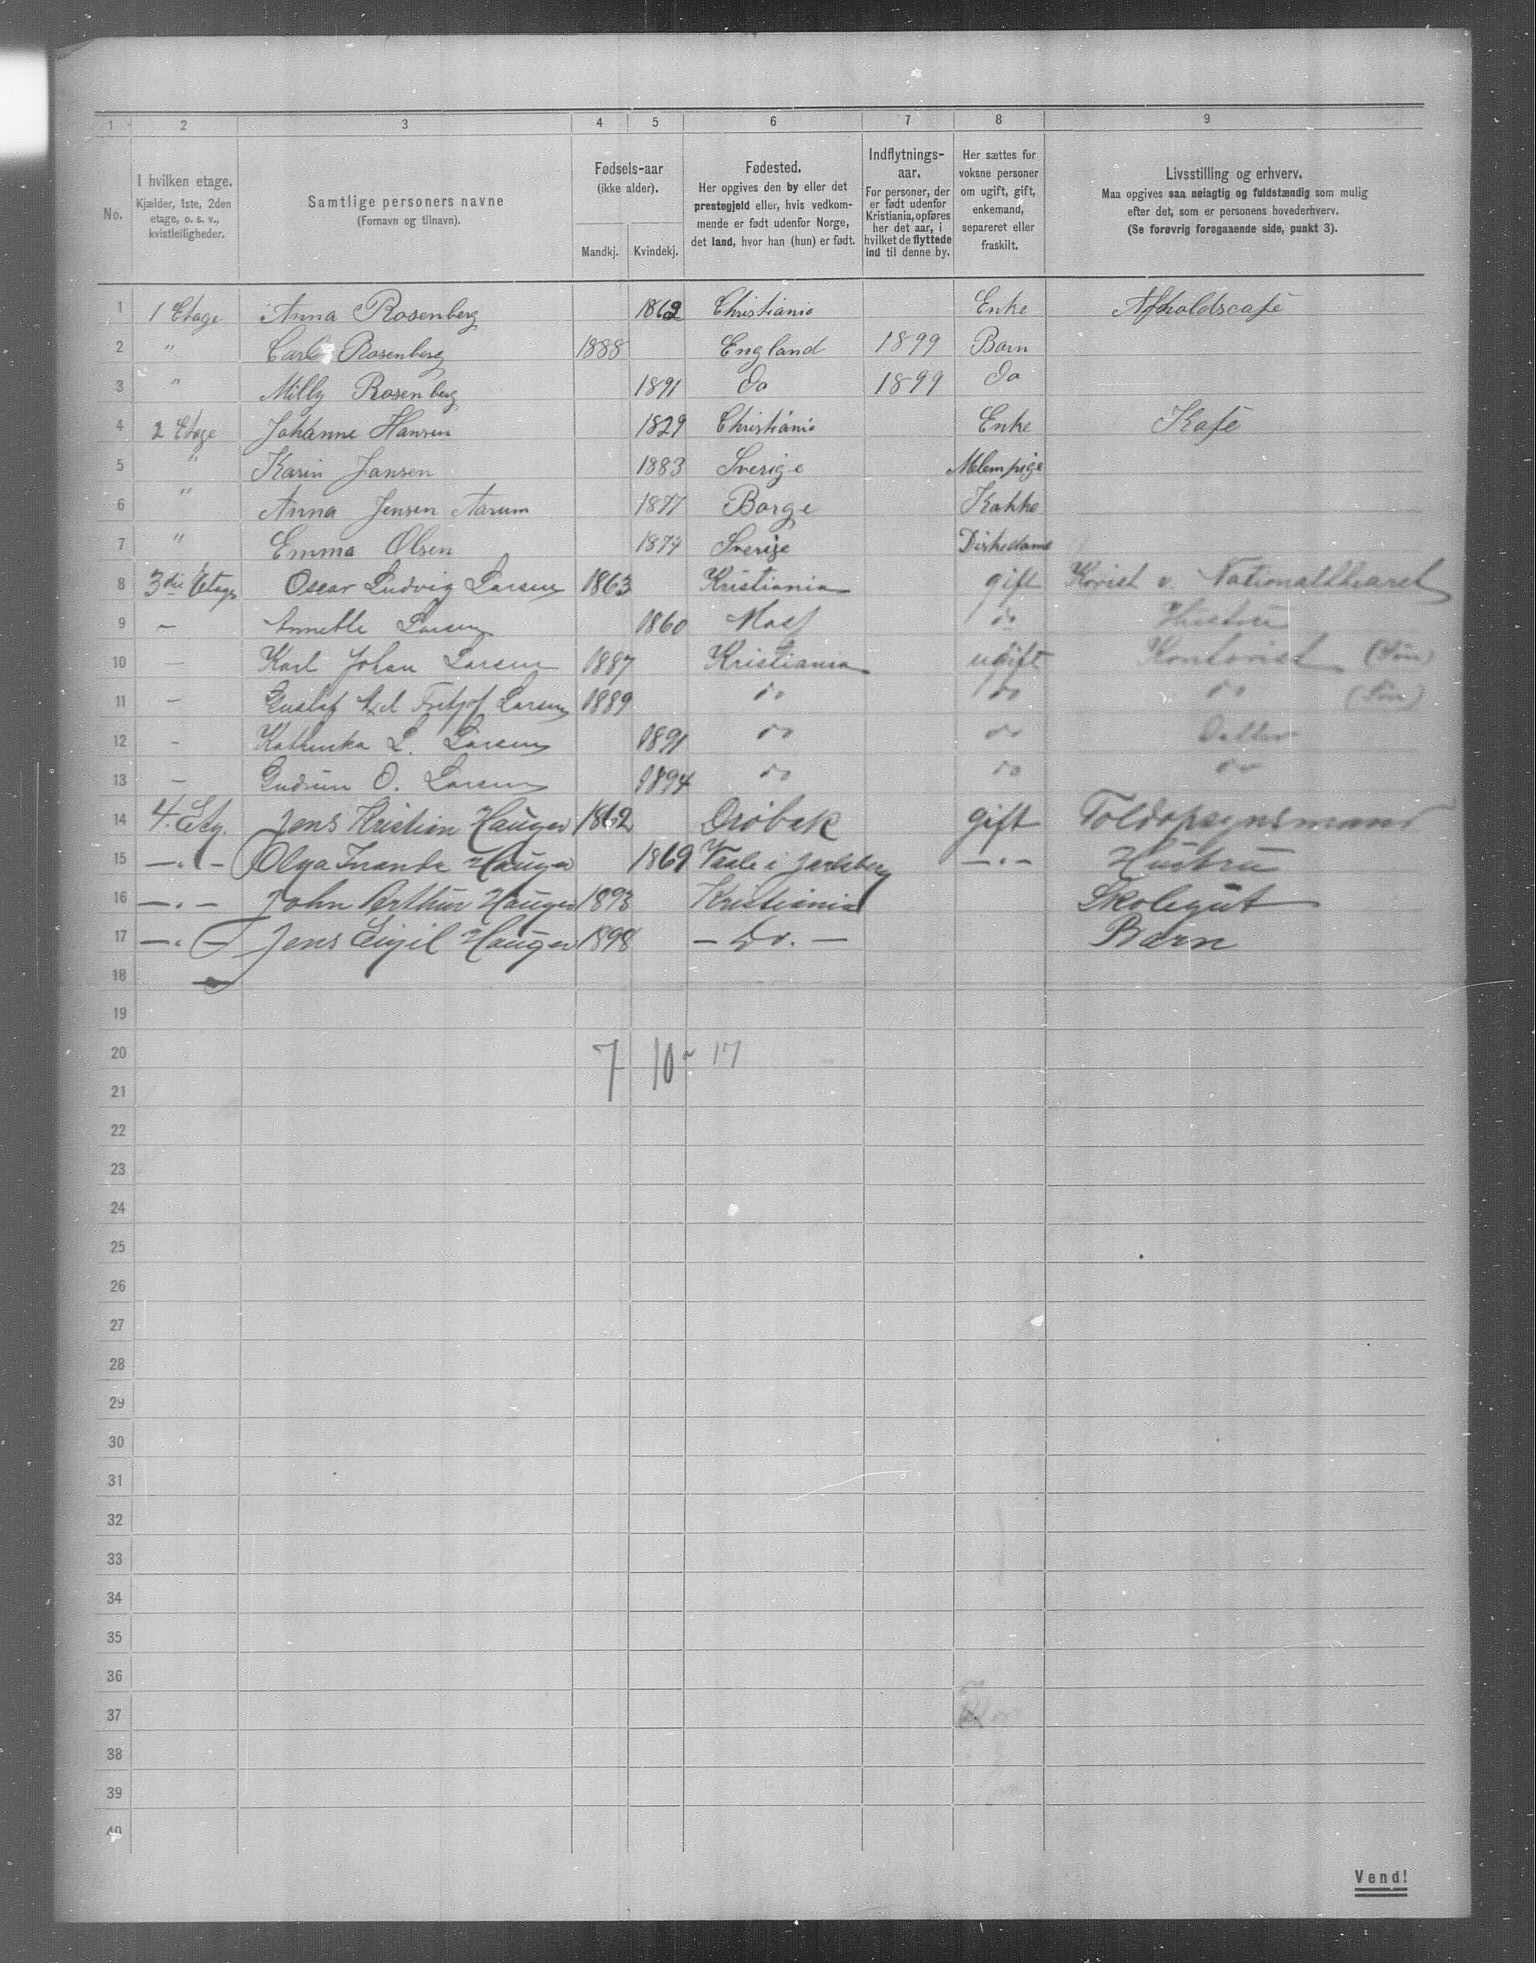 1 2 3 4 5 6 7 8 9
No. | I hvilken etage. Kjælder, 1ste, 2den etage, o. s. v., kvistleiligheder. | Samtlige personers navne (Fornavn og tilnavn). | Fødsels-aar (ikke alder). Mandkj. | Kvindekj. | Fødested. Her opgives den by eller det prestegjeld eller, hvis vedkommende er født udenfor Norge, det land, hvor han (hun) er født. | Indflytnings-aar. For personer, der er født udenfor Kristiania, opføres her det aar, i hvilket de flyttede ind til denne by. | Her sættes for voksne personer om ugift, gift, enkemand, separeret eller fraskilt. | Livsstilling og erhverv. Maa opgives saa nøiagtig og fuldstændig som mulig efter det, som er personens hovederhverv. (Se forøvrig foregaaende side, punkt 3).
1 1 Etage Anna Rosenberg 1862 Christiania Enke Afholdscafé
2 " Carl Rosenberg 1888 England 1899 Barn
3 " Milly Rosenberg 1891 do 1899 do
4 2 Etage Johanne Hansen 1829 Christiania Enke Kafé
5 " Karin Jansen 1883 Sverige
6 " Anna Jensen Aarum 1877 Borge Kokke
7 " Emma Olsen 1874 Sverige Diskedame
8 3die Etage Oscar Ludvig Larsen 1863 Kristiania gift Korist v. Nationaltheatret
9 — Annette Larsen 1860 Moss do Hustru
10 — Karl Johan Larsen 1887 Kristiania ugift Kontorist (Søn)
11 — Gustaf Fritjof Larsen 1889 do do do (Søn)
12 - L. Larsen 1891 do do Datter
13 — Gudrun O. Larsen 1894 do do do
14 4. Etg. Jens Kristian Hauger 1862 Drøbak gift Toldopsynsmand
15 —"— Olga Hauger 1869 Vaale i Jarlsberg —"— Hustru
16 —"— John Arthur Hauger 1893 Kristiania Skolegut
17 —"— Jens Eigil Hauger 1898 — Do. — Barn
18
19
20 7 10 - 17
21
22
23
24
25
26
27
28
29
30
31
32
33
34
35
36
37
38
39
40
Vend!